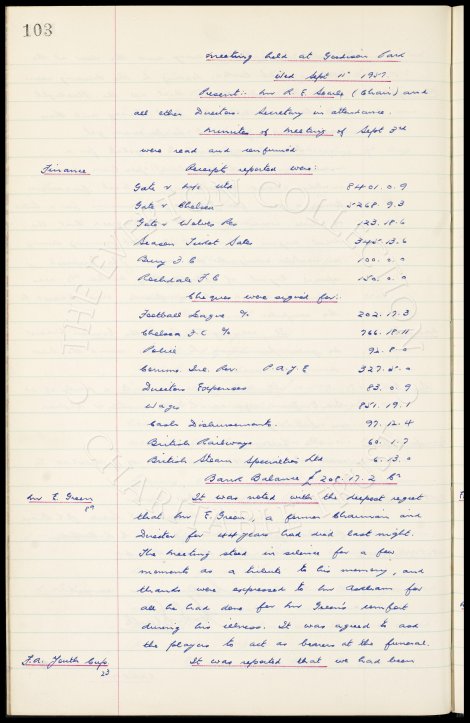 103
Meeting held at Goodison Park
Wed Sept 11th 1957.
Present:- Mr R. E. Searle (Chair) and
all other Directors. Secretary in attendance.
Minutes of Meeting of Sept 3rd
were read and confirmed.
Finance
Receipts reported were:
Gate v Utd 8401.0.9
Gate v Chelsea 5268.9.3
Gate v Wolves Res 123.18.6
Season Ticket Sales 345.13.6
Bury F.C 100.0.0
Rochdale F.C 150.0.0
Cheques were signed for:
Football League % 202.17.3
Chelsea F.C % 766.18.11
Police 92.8.0
Comms. Inl. Rev. P.A.Y.E 327.5.0
Directors Expenses 83.0.9
Wages 851.19.1
Cash Disbursements. 97.12.4
British Railways 60.1.7
British Steam Specialties Ltd 6.13.0
Bank Balance £ 208.17.2 Cr
Mr E. Green
It was noted with the deepest regret
that Mr E. Green, a former Chairman and
Director for 44 years had died last night.
The Meeting stood in silence for a few
moments as a tribute to his memory, and
thanks were expressed to Mr for
all he had done for Mr Green's comfort
during his illness. It was agreed to ask
the players to act as bearers at the funeral.
F.A. Youth Cup
23
It was reported that we had been
THE EVERTON COLLECTION
CHARITABLE